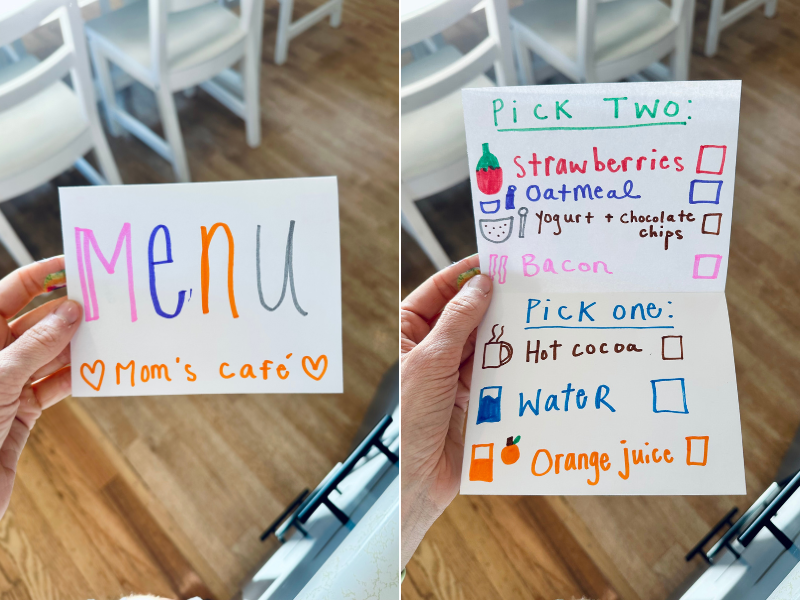 Menu
Mom's café
Pick Two:
Strawberries
Oatmeal
Yogurt + chocolate
chips
Bacon
Pick one:
Hot cocoa
Water
Orange juice